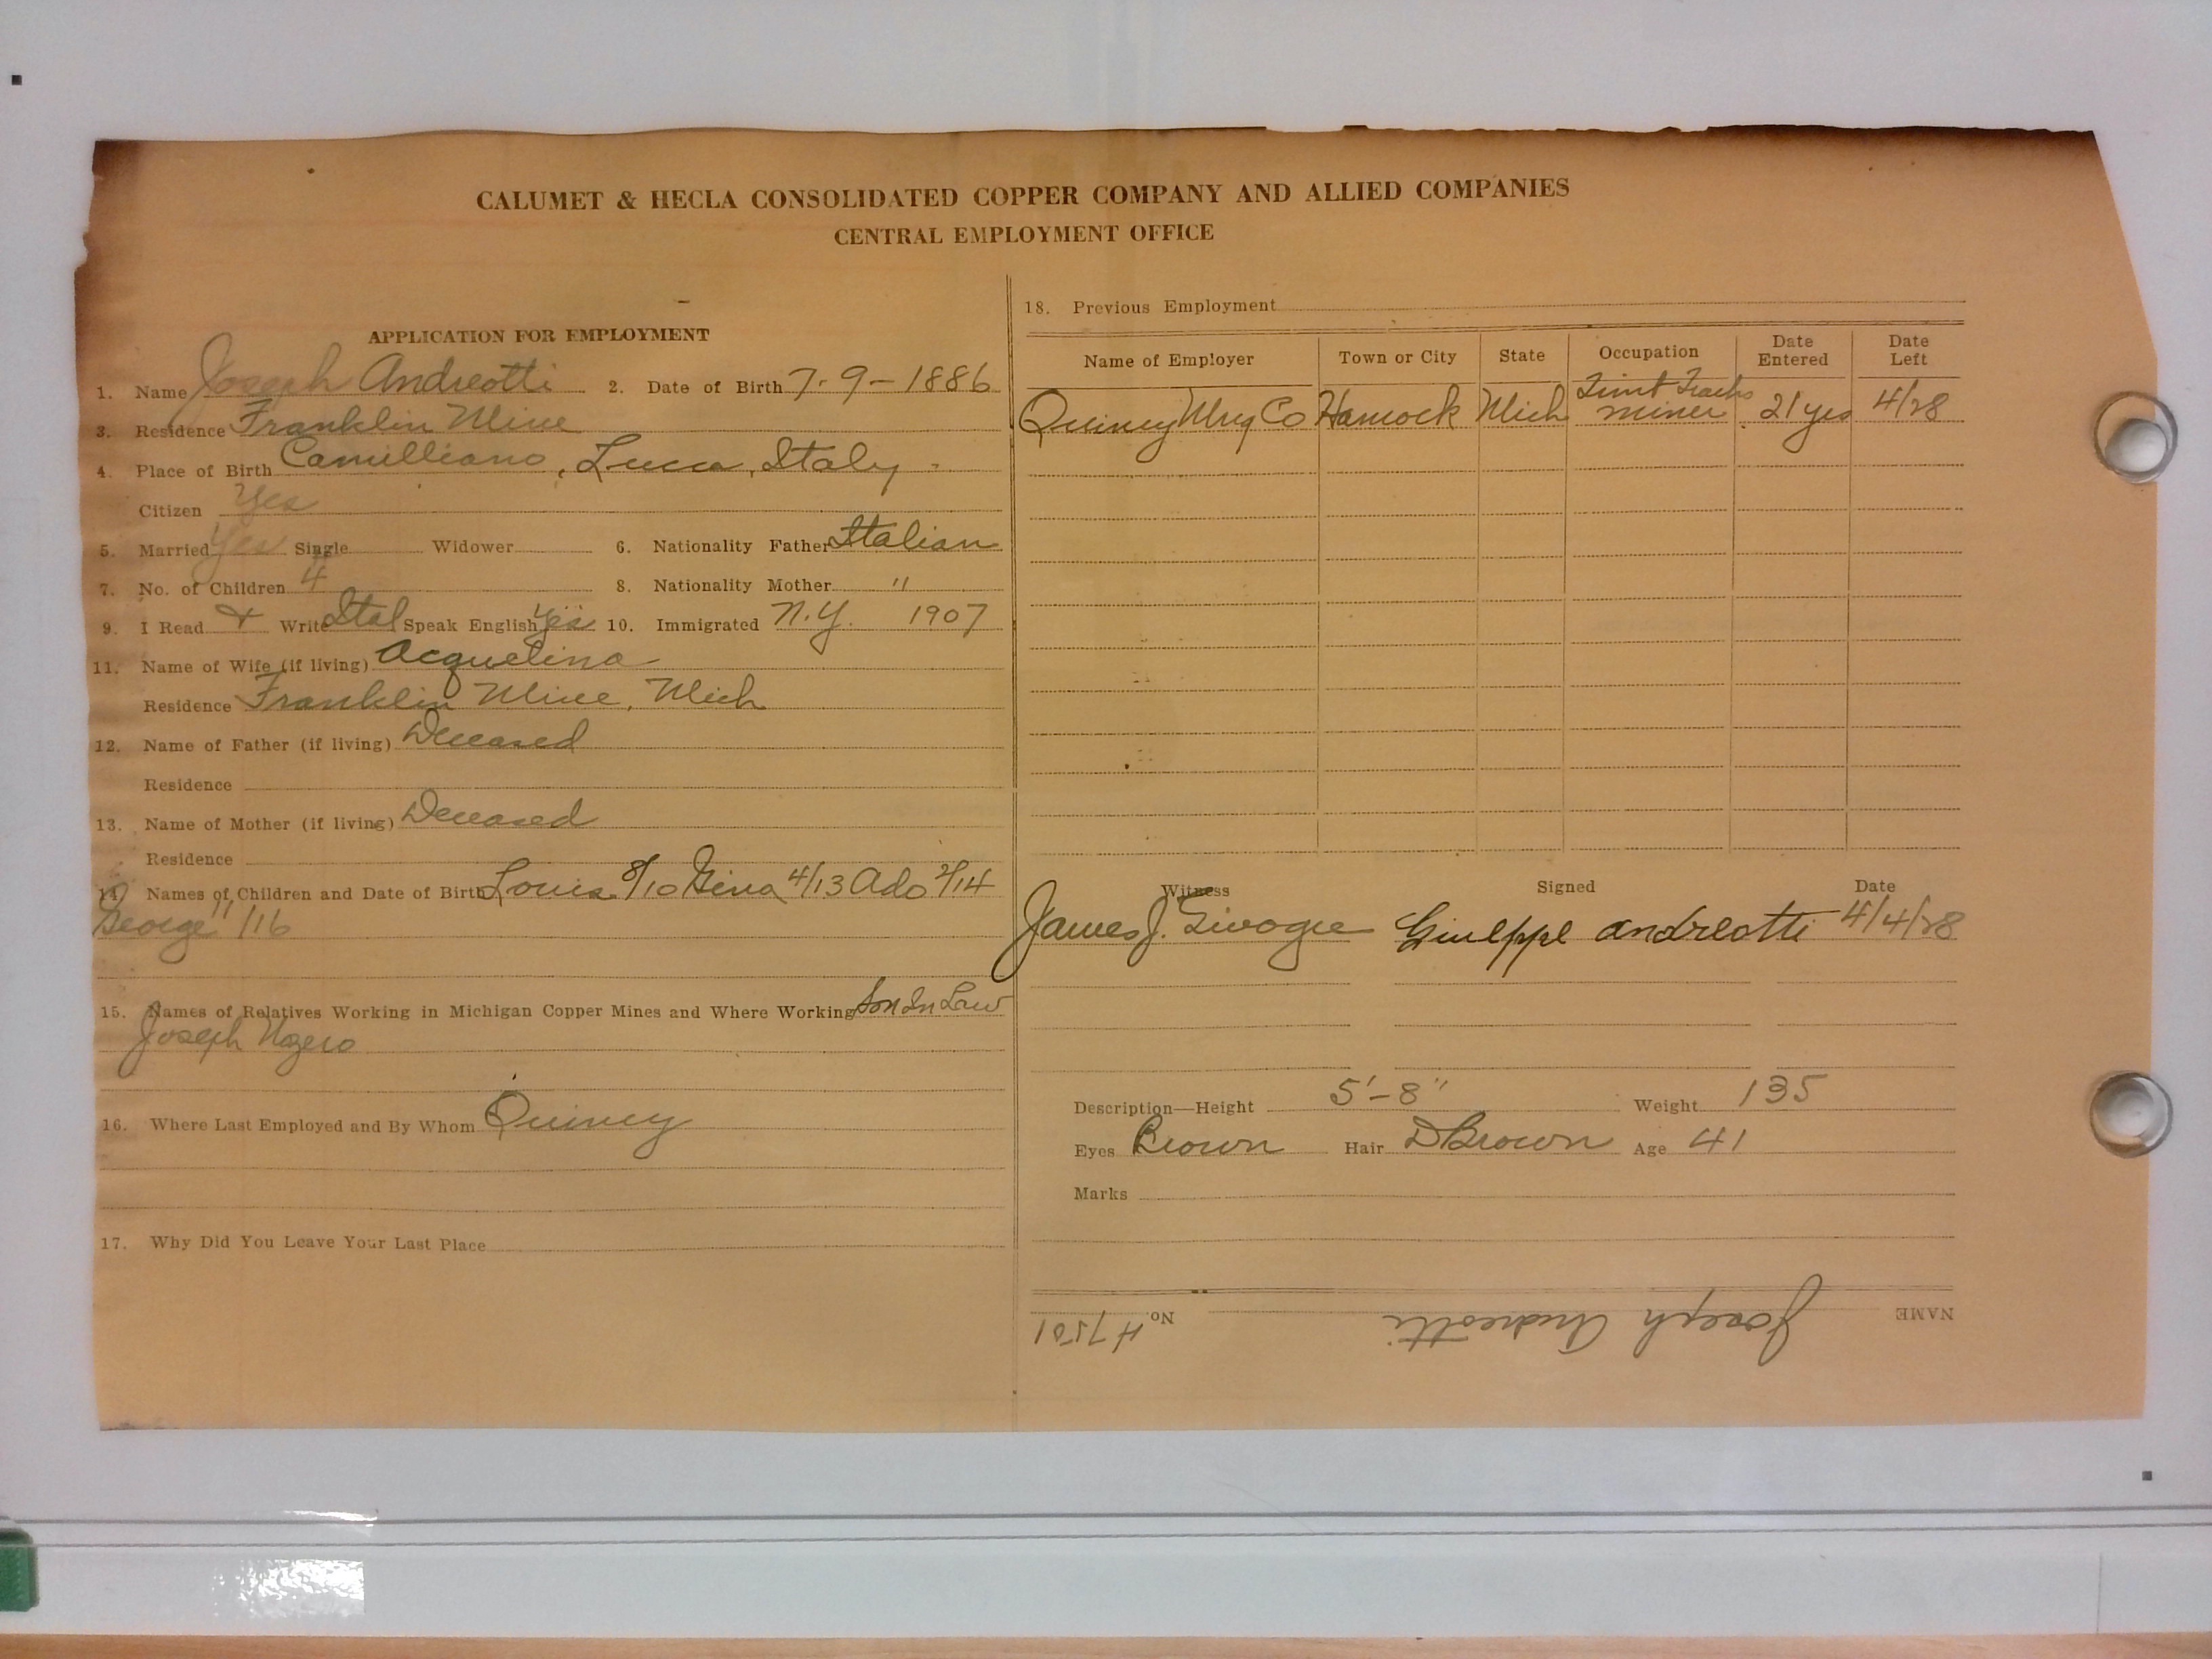 CALUMET & HECLA CONSOLIDATED COPPER COMPANY AND ALLIED COMPANIES
CENTRAL EMPLOYMENT OFFICE
APPLICATION FOR EMPLOYMENT
1. Name Joseph Andreotti 2. Date of Birth 7-9-1886
3. Residence Franklin Mine
4. Place of Birth Camilliano, Lucca, Italy
Citizen Yes
5. Married Yes Single Widower 6. Nationality Father Italian
7. No. of Children 4 8. Nationality Mother "
9. I Read + Write Ital Speak English Yes 10. Immigrated N.Y. 1907
11. Name of Wife (if living) Acquelina
Residence Franklin Mine, Mich
12. Name of Father (if living) Deceased
Residence
13. Name of Mother (if living) Deceased
Residence
14. Names of Children and Date of Birth Louis 8/10 Gina 4/13 Ado 2/14
George 11/16
15. Names of Relatives Working in Michigan Copper Mines and Where Working Son In Law
Joseph Nozero
16. Where Last Employed and By Whom Quincy
17. Why Did You Leave Your Last Place
18. Previous Employment
Name of Employer Town or City State Occupation Date Entered Date Left
Quincy Mng Co Hancock Mich Miner 21 yrs 4/28
Witness Signed Date
James J. Giuseppe Andreotti 4/4/28
Description—Height 5'-8" Weight 135
Eyes Brown Hair D Brown Age 41
Marks
NAME Joseph Andreotti No. H7501